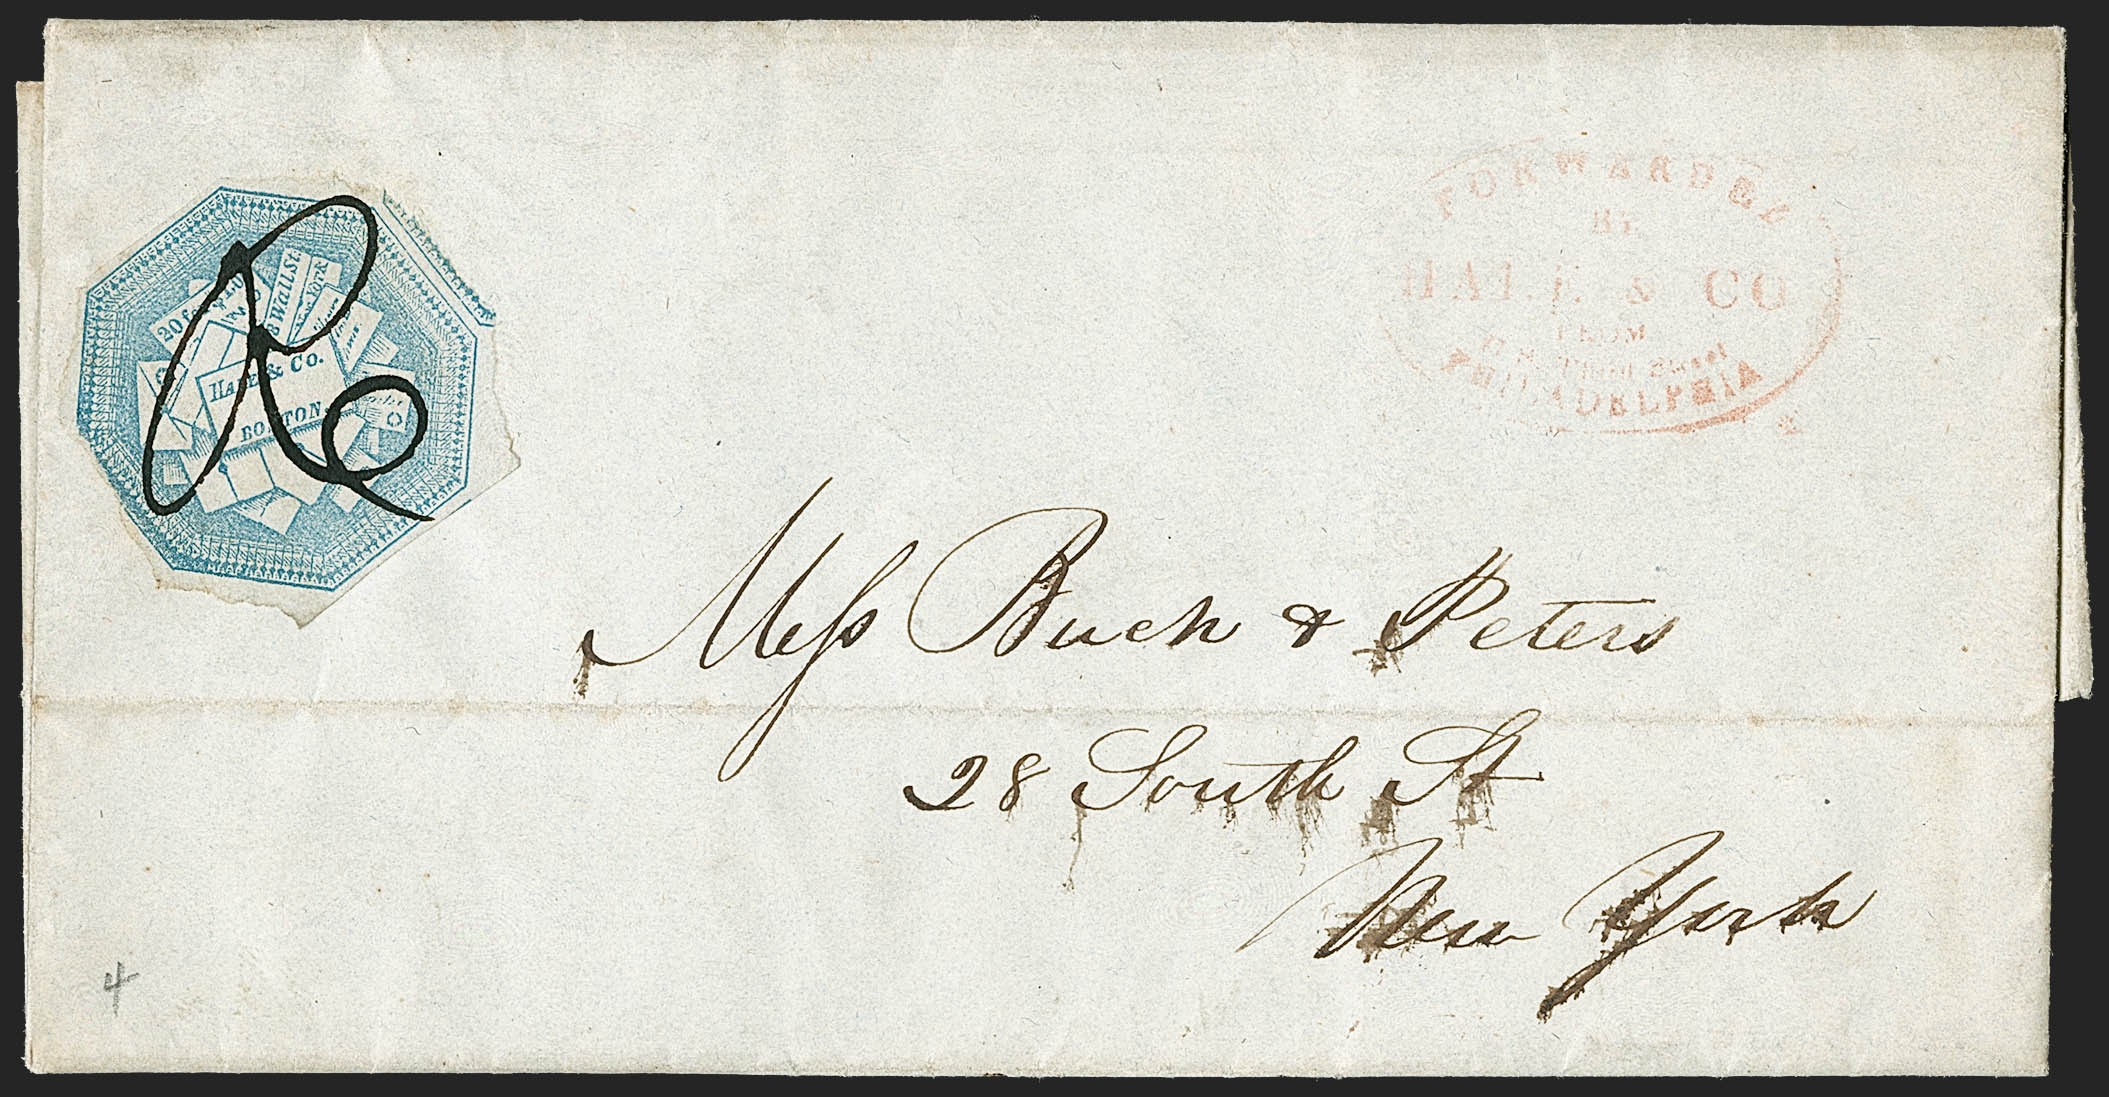 20 for
Wall St.
New York
HALE & CO.
BOSTON.
FORWARDED
BY
HALE & CO
FROM
Third Street
PHILADELPHIA
Mess Buck & Peters
28 South St
New York
4